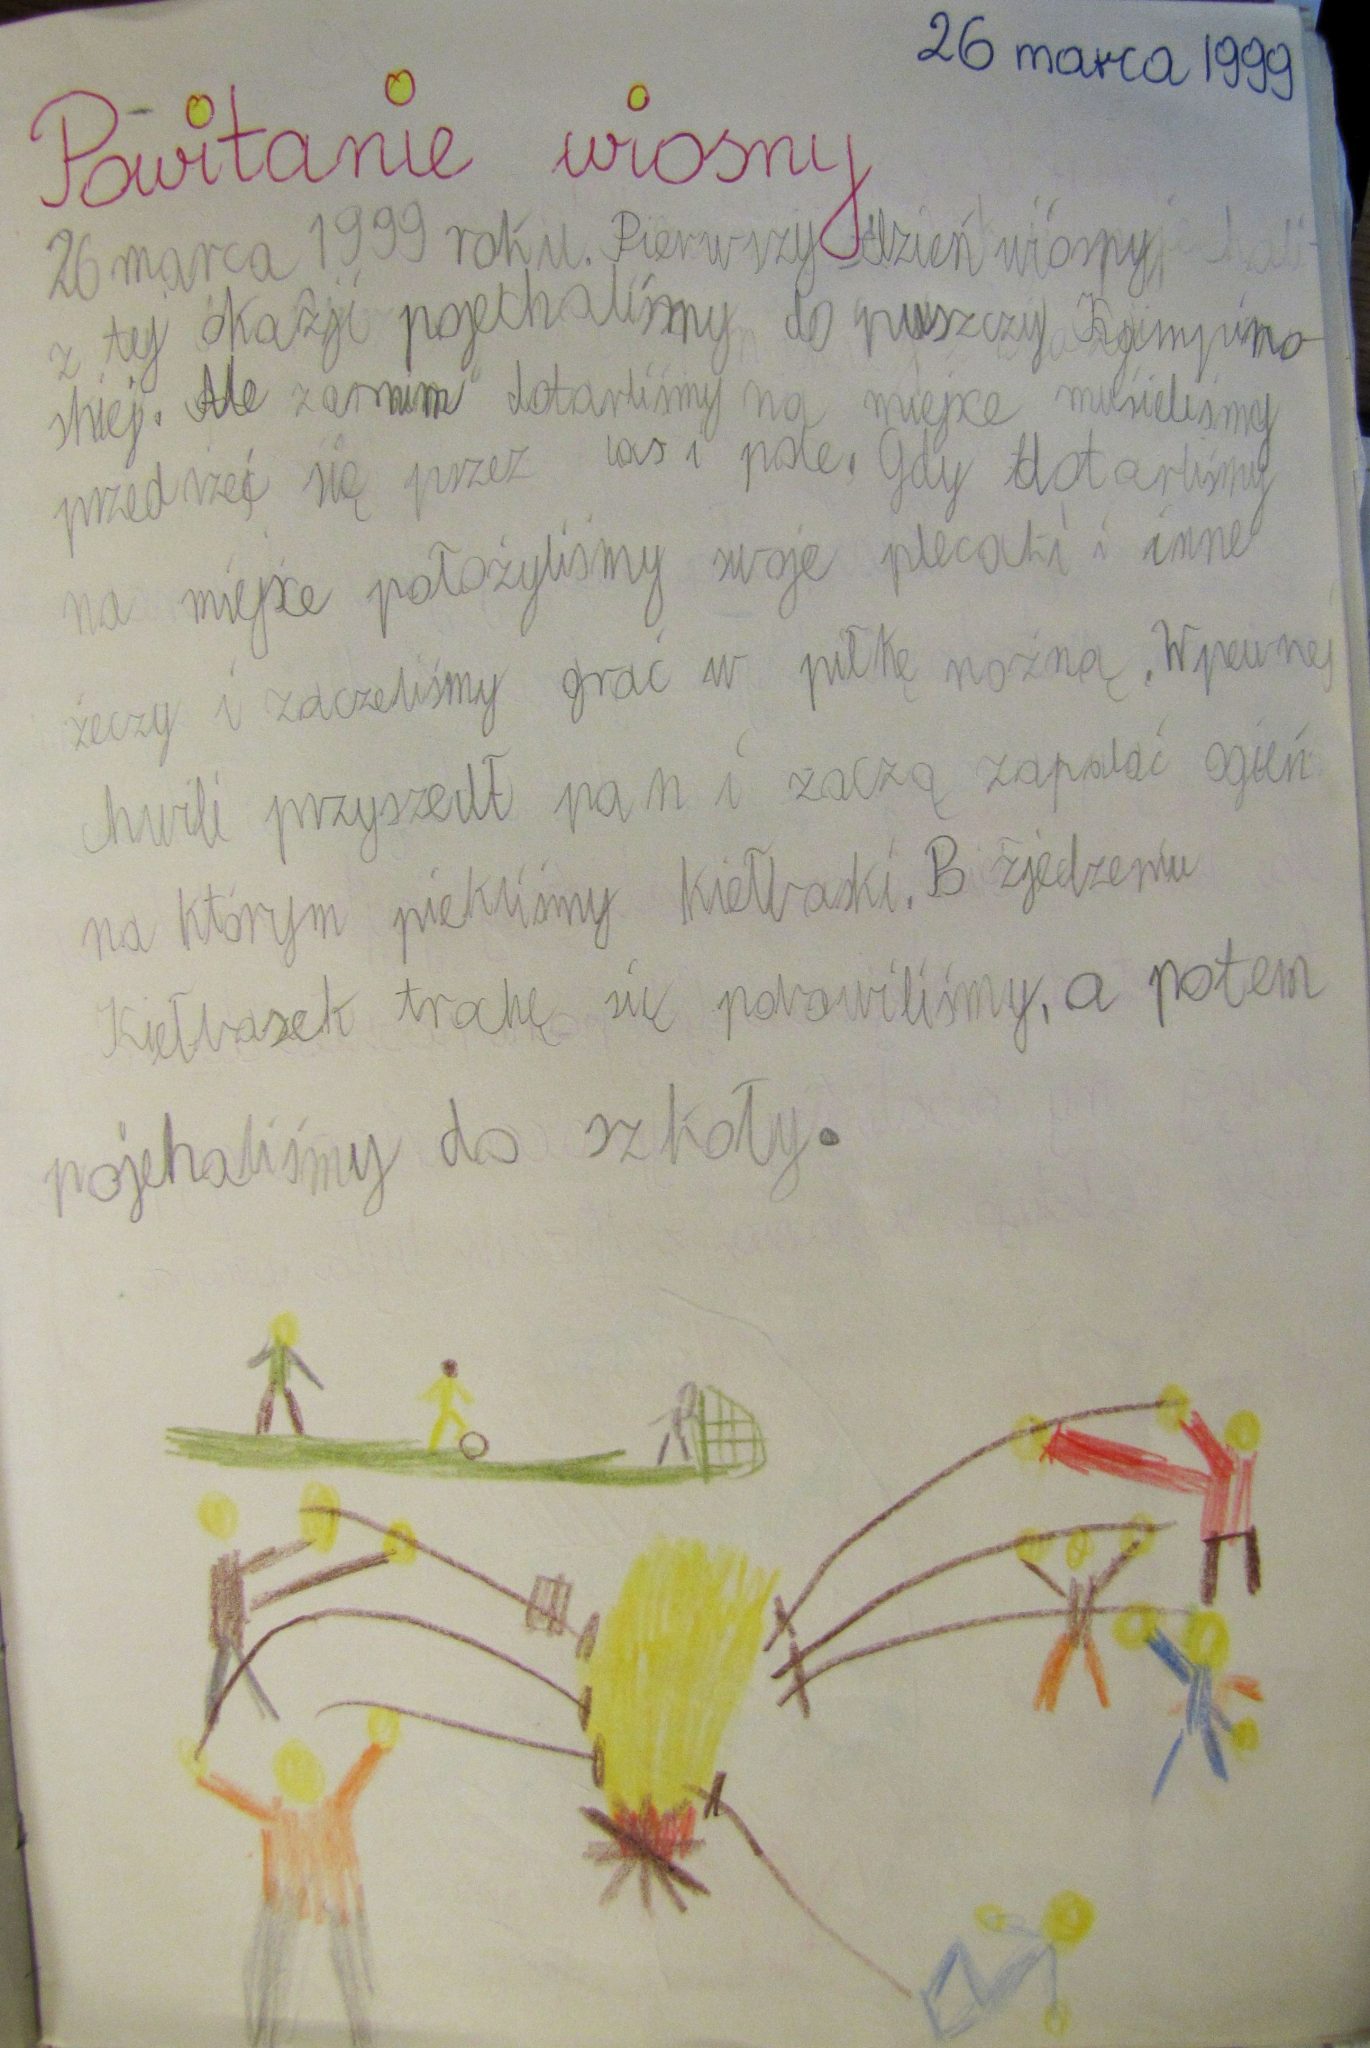 26 marca 1999
Powitanie wiosny
26 marca 1999 roku. Pierwszy dzień wiosny,
z tej okazji pojechaliśmy do puszczy Kampino-
skiej. Ale zanim dotarliśmy na miejsce musieliśmy
przedrzeć się przez las i pole. Gdy dotarliśmy
na miejsce położyliśmy swoje plecaki i inne
żeczy i zaczeliśmy grać w piłkę nożną. W pewnej
chwili przyszedł pan i zaczą zapalać ogień
na którym piekliśmy kiełbaski. Po zjedzeniu
Kiełbasek trohę się pobawiliśmy, a potem
pojehaliśmy do szkoły.